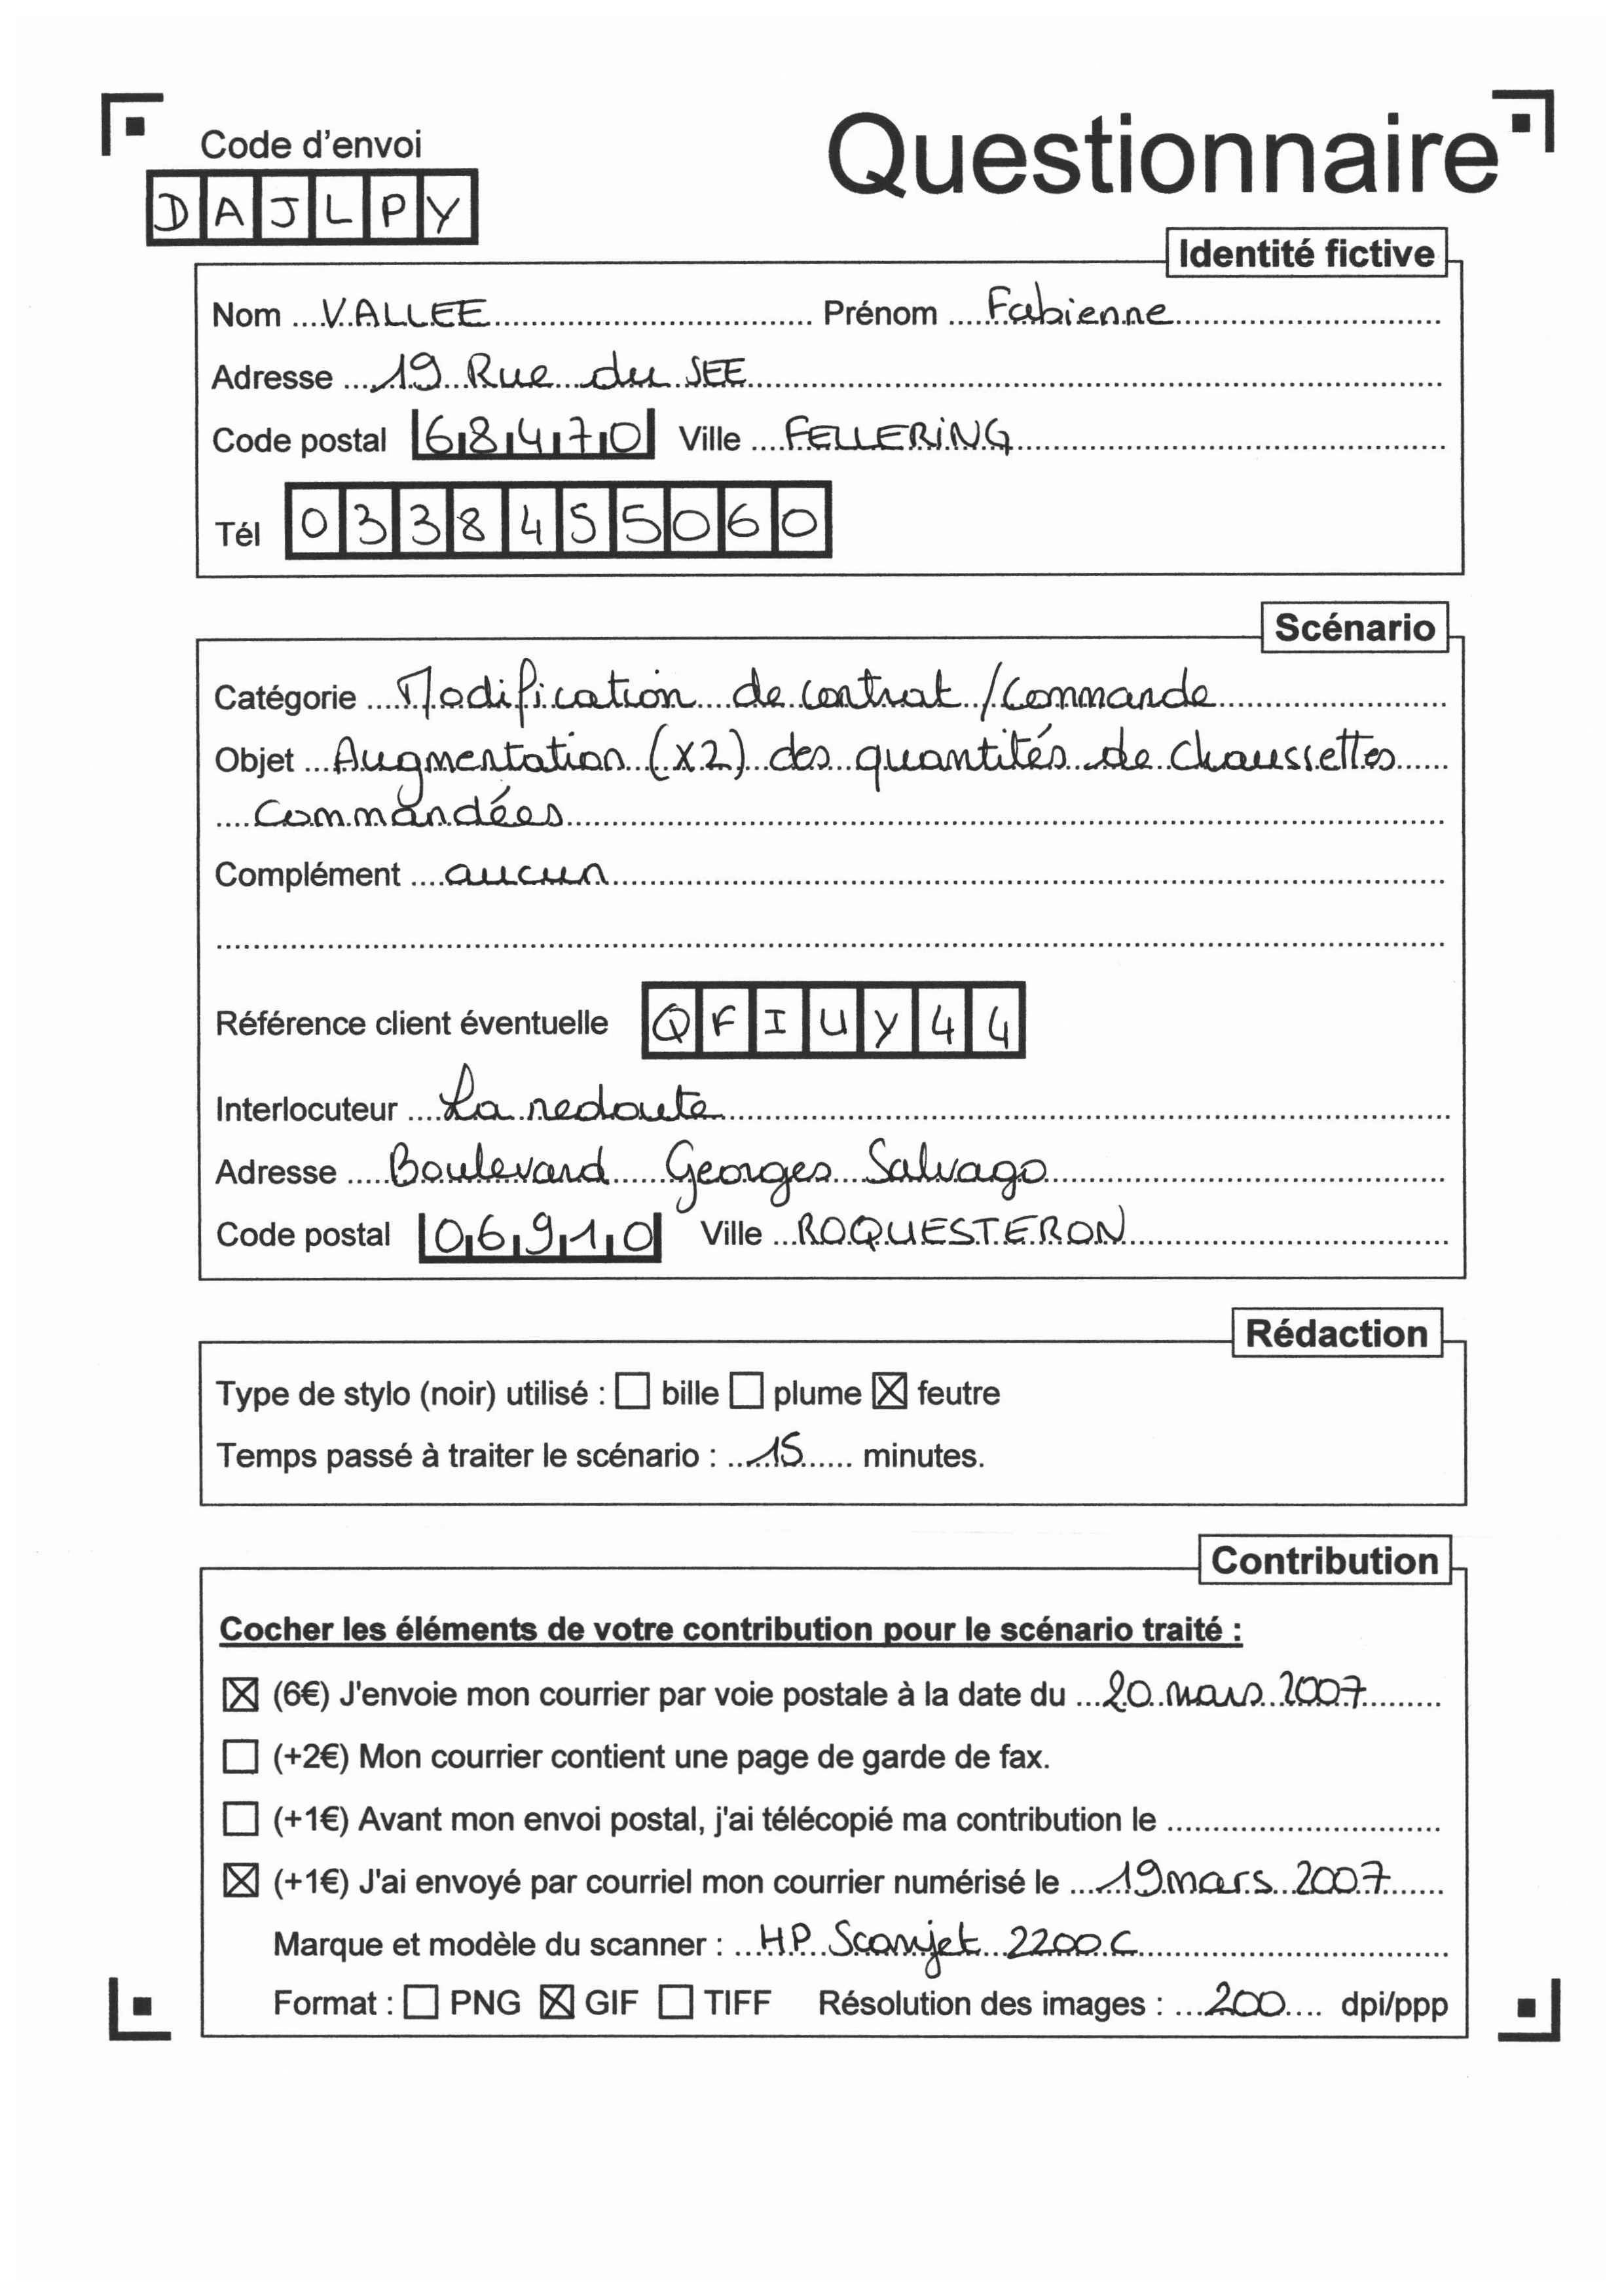 Code d'envoi
Questionnaire
DAJLPY
Identité fictive
Nom VALLEE Prénom Fabienne
Adresse 19 Rue du SEE
Code postal 68470 Ville FELLERING
Tél 0338455060
Scénario
Catégorie Modification de contrat / Commande
Objet Augmentation (x2) des quantités de chaussettes
Commandées
Complément aucun
Référence client éventuelle QFIUY44
Interlocuteur La redoute
Adresse Boulevard Georges Salvago
Code postal 06910 Ville ROQUESTERON
Rédaction
Type de stylo (noir) utilisé : ☐ bille ☐ plume ☒ feutre
Temps passé à traiter le scénario : 15 minutes.
Contribution
Cocher les éléments de votre contribution pour le scénario traité :
☒ (6€) J'envoie mon courrier par voie postale à la date du 20 mars 2007
☐ (+2€) Mon courrier contient une page de garde de fax.
☐ (+1€) Avant mon envoi postal, j'ai télécopié ma contribution le
☒ (+1€) J'ai envoyé par courriel mon courrier numérisé le 19 mars 2007
Marque et modèle du scanner : HP Scanjet 2200C
Format : ☐ PNG ☒ GIF ☐ TIFF Résolution des images : 200 dpi/ppp